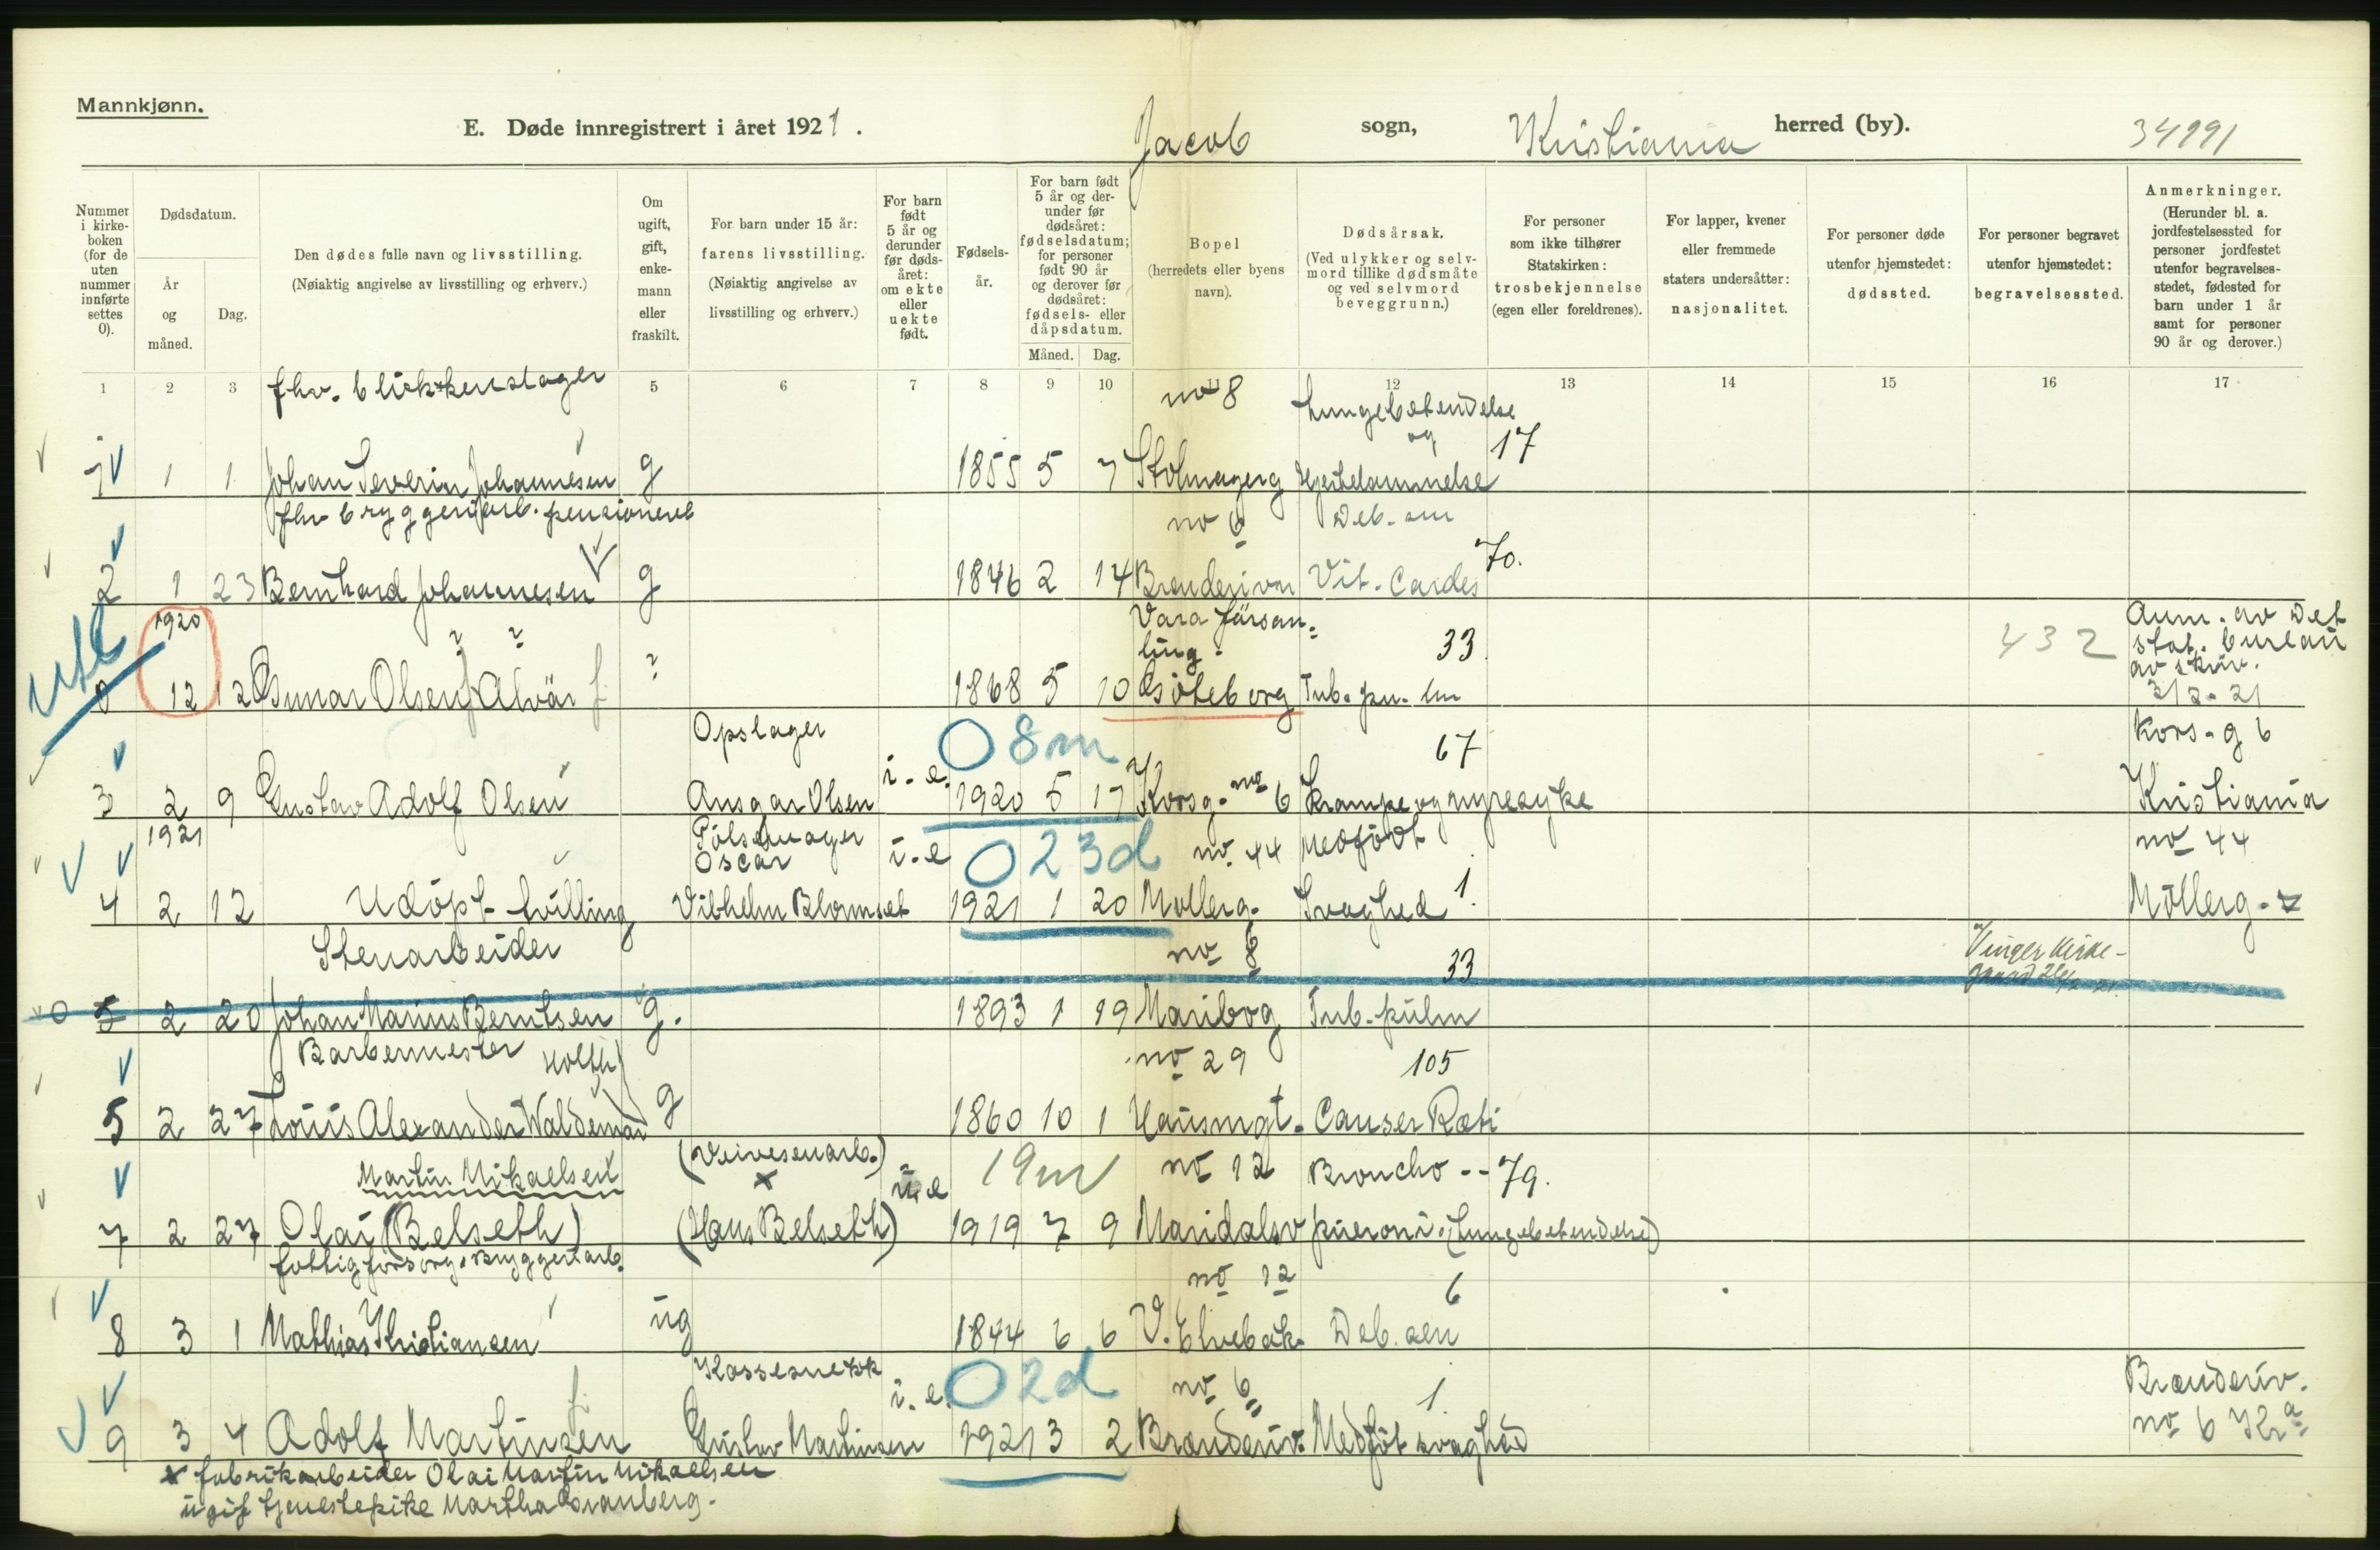 Mannkjønn.
E. Døde innregistrert i året 1921. Jacob sogn, Kristiania herred (by). 34991
Nummer i kirke- boken (for de uten nummer innførte settes 0).
Dødsdatum.
År og måned.
Dag.
Den dødes fulle navn og livsstilling.
(Nøiaktig angivelse av livsstilling og erhverv.)
Om ugift, gift, enke- mann eller fraskilt.
For barn under 15 år:
farens livsstilling.
(Nøiaktig angivelse av livsstilling og erhverv.)
For barn født 5 år og derunder før døds- året: om ekte eller uekte født.
Fødsels- år.
For barn født 5 år og der- under før dødsåret: fødselsdatum; for personer født 90 år og derover før dødsåret: fødsels- eller dåpsdatum.
Måned. Dag.
Bopel
(herredets eller byens navn).
Dødsårsak.
(Ved ulykker og selv- mord tillike dødsmåte og ved selvmord beveggrunn.)
For personer som ikke tilhører Statskirken: trosbekjennelse (egen eller foreldrenes).
For lapper, kvener eller fremmede staters undersåtter: nasjonalitet.
For personer døde utenfor hjemstedet: dødssted.
For personer begravet utenfor hjemstedet: begravelsessted.
Anmerkninger.
(Herunder bl. a. jordfestelsessted for personer jordfestet utenfor begravelses- stedet, fødested for barn under 1 år samt for personer 90 år og derover.)
1 2 3 5 6 7 8 9 10 11 12 13 14 15 16 17
fhv. blikkenslager no 8 Lungebetendelse
og 17
1 1 1 Johan Severin Johannesen g 1855 5 7 Stolmagerg Hjertelammelse
fhv bryggeriarb. pensionert no 6 Deb. sen
70.
2 1 23 Bernhard Johannesen g 1846 2 14 Brenderivn Vit. Cordis
1920 Vara församling. 33 432 Anm. av Det stat. bureau av skriv. 3/2-21
0 12 12 Gunar Olsen Alvär ? 1868 5 10 Göteborg Tub. pu. lm
Opslager 08m 67 Kors-g 6
3 2 9 Gustav Adolf Olsen Ansgar Olsen i.e. 1920 5 17 Korsg. no 6 Krampe og nyresyke Kristiania
1921 Pölsemager Oscar i.e 023d no. 44 Medfödt no 44
4 2 12 Udöpt tvilling Vilhelm Blomset 1921 1 20 Mollerg. Svaghed 1. Möllerg.
Stenarbeider no 8 33 Vinger kirke-
gaard
0 5 2 20 Johan Marius Berntsen g. 1893 1 19 Maribog Tub. pulm
Barbermester Holth no 29 105
5 2 27 Louis Alexander Waldemar g 1860 10 1 Hausmgt. Cancer Recti
Martin Mikaelsen (Veivesenarb.) x u.e 19m no 12 Broncho -- 79.
7 2 27 Olai (Belseth) (Hans Belseth) 1919 7 9 Maridalsv pneuoni. (Lungebetendelse)
fattigforsorg. Bryggeriarb. no 12 6
8 3 1 Mathias Kristiansen ug 1844 6 6 V. Elvebak. Deb. sen
Kassesnekk i.e. 02d no 6 1. Brenderiv.
9 3 4 Adolf Martinsen Gustav Martinsen 1921 3 2 Brenderiv. Medföt svaghed no 6 Kra
x fabrikarbeider Olai Martin Mikaelsen
ugift tjenestepike Martha Granberg.